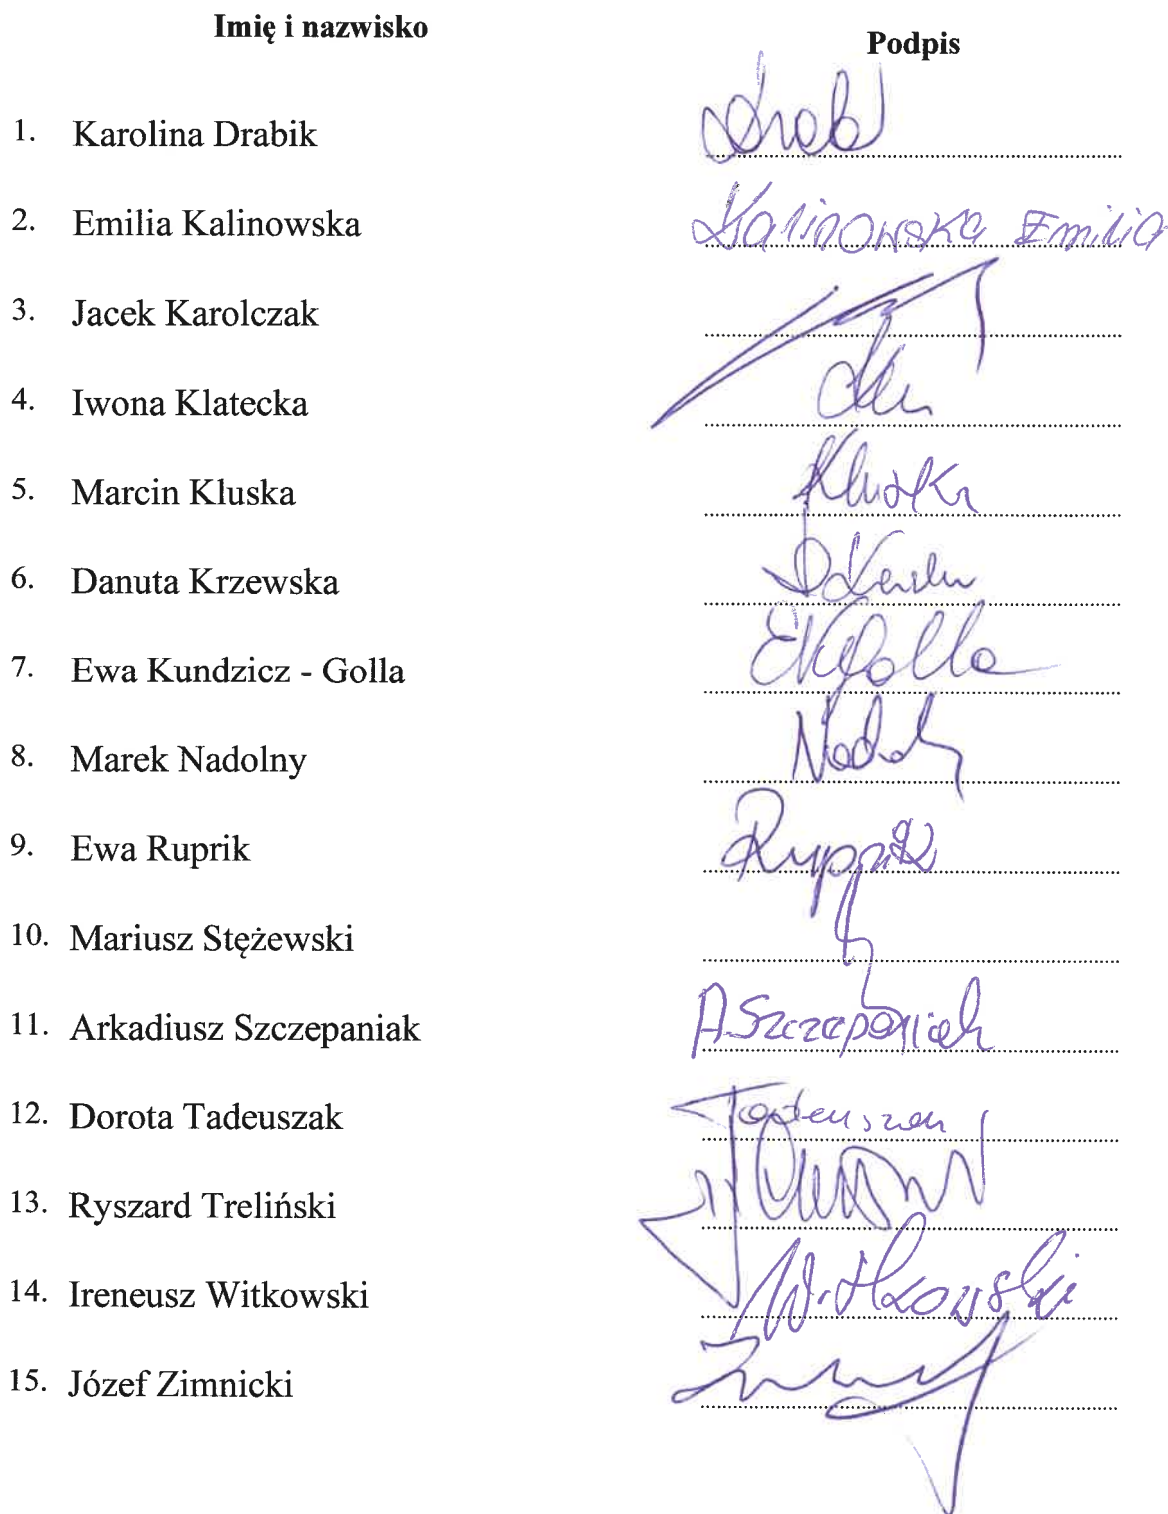 Imię i nazwisko
Podpis
1. Karolina Drabik
2. Emilia Kalinowska Kalinowska Emilia
3. Jacek Karolczak
4. Iwona Klatecka
5. Marcin Kluska Kluska
6. Danuta Krzewska
7. Ewa Kundzicz - Golla EKGolla
8. Marek Nadolny
9. Ewa Ruprik
10. Mariusz Stężewski
11. Arkadiusz Szczepaniak ASzczepaniak
12. Dorota Tadeuszak
13. Ryszard Treliński
14. Ireneusz Witkowski Witkowski
15. Józef Zimnicki